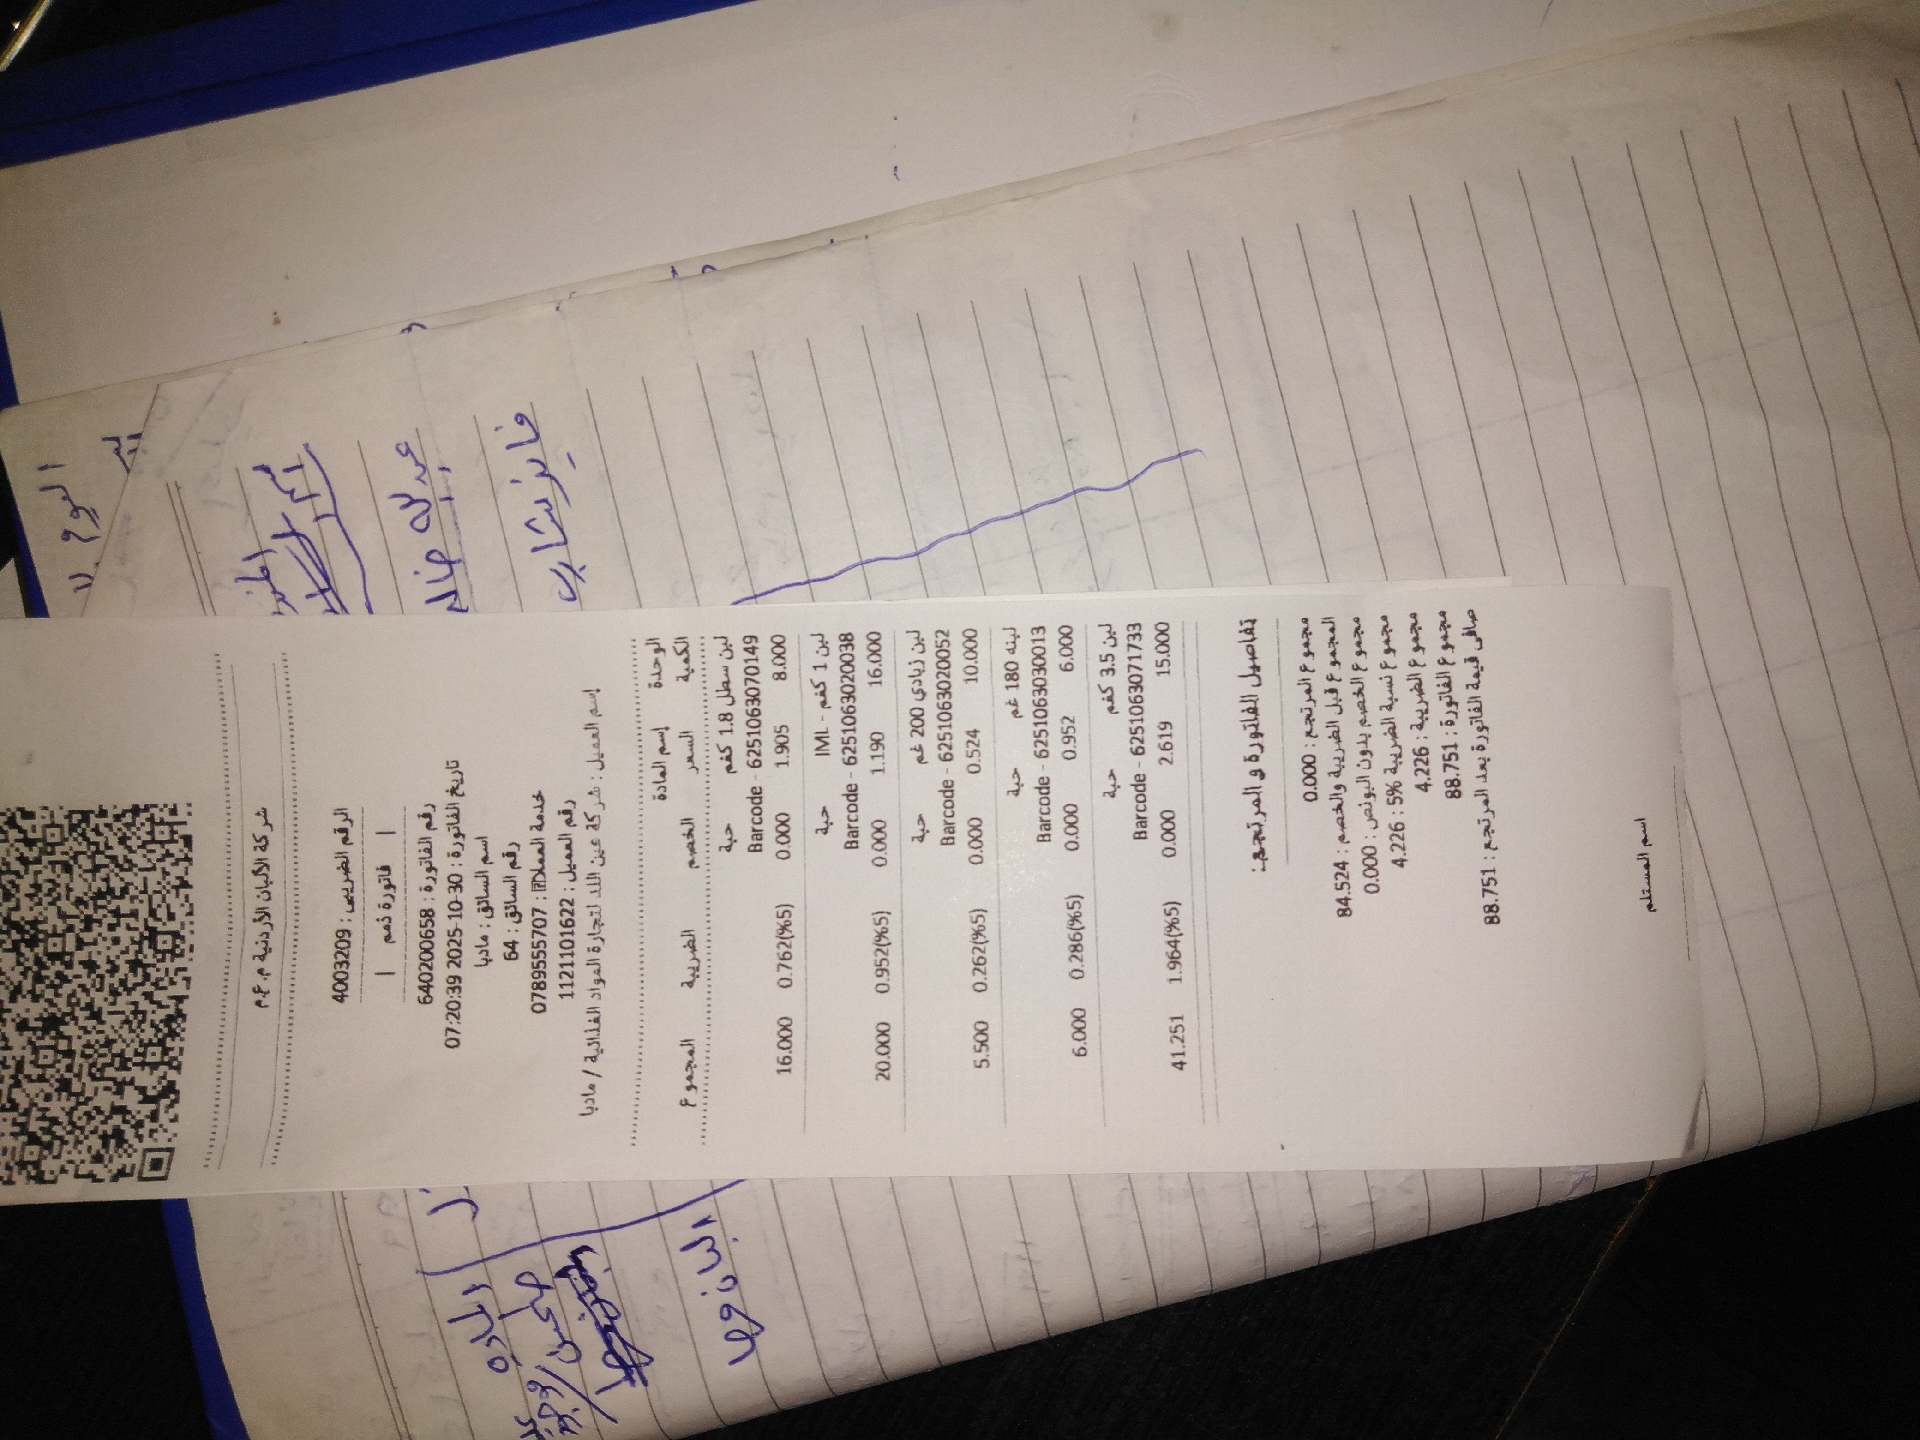 شركة الألبان الأردنية م.ع.م
الرقم الضريبي : 4003209
| فاتورة ذمم |
رقم الفاتورة : 640200658
تاريخ الفاتورة : 30-10-2025 07:20:39
اسم السائق : مادبا
رقم السائق : 64
خدمة العملاء : 0789555707
رقم العميل : 1121101622
إسم العميل : شركة عين اللد لتجارة المواد الغذائية / مادبا
إسم المادة الوحدة
الكمية السعر الخصم الضريبة المجموع
لبن سطل 1.8 كغم حبة
Barcode - 6251063070149
8.000 1.905 0.000 0.762(%5) 16.000
لبن 1 كغم - IML حبة
Barcode - 6251063020038
16.000 1.190 0.000 0.952(%5) 20.000
لبن زبادي 200 غم حبة
Barcode - 6251063020052
10.000 0.524 0.000 0.262(%5) 5.500
لبنه 180 غم حبة
Barcode - 6251063030013
6.000 0.952 0.000 0.286(%5) 6.000
لبن 3.5 كغم حبة
Barcode - 6251063071733
15.000 2.619 0.000 1.964(%5) 41.251
تفاصيل الفاتورة و المرتجع:
مجموع المرتجع : 0.000
المجموع قبل الضريبة والخصم : 84.524
مجموع الخصم بدون البونص : 0.000
مجموع نسبة الضريبة 5% : 4.226
مجموع الضريبة : 4.226
مجموع الفاتورة : 88.751
صافي قيمة الفاتورة بعد المرتجع : 88.751
اسم المستلم
اليوم
عبدالله
فايز
الماده